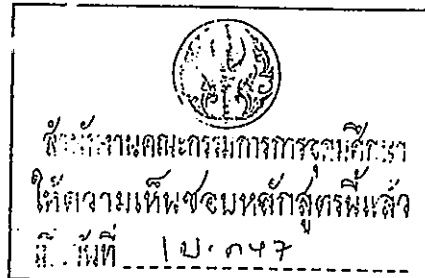 สำนักงานคณะกรรมการการอุดมศึกษา
ให้ความเห็นชอบหลักสูตรนี้แล้ว
วันที่